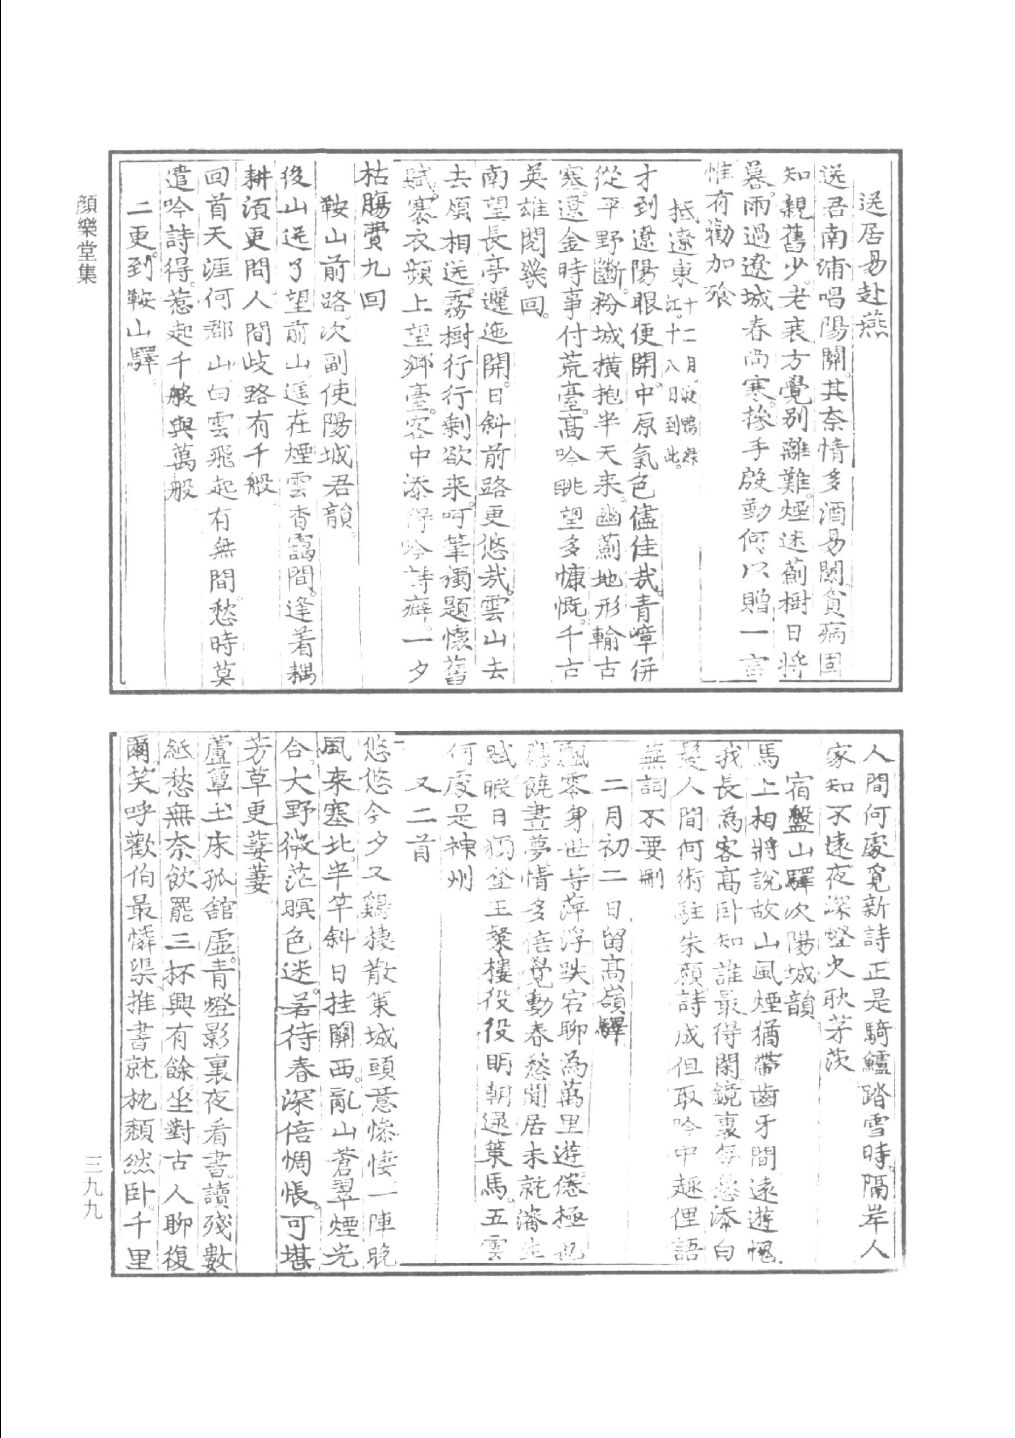 送居易赴燕
送君南浦唱陽關其奈情多酒易闌貧病固
知親舊少老衰方覺別離難煙迷薊樹日將
暮雨過遼城春尚寒摻手殷勤何以贈一言
惟有勸加飡
抵遼東十二月渡鴨綠
江十八日到此
才到遼陽眼便開中原氣色儘佳哉青嶂併
從平野斷粉城橫抱半天來幽薊地形輸古
塞遼金時事付荒臺高吟眺望多慷慨千古
英雄閱幾回
南望長亭邐迤開日斜前路更悠哉雲山去
去頻相送霧樹行行剩欲來呵筆獨題懷舊
賦褰衣頻上望鄉臺客中添得吟詩癖一夕
枯腸費九回
鞍山前路次副使陽城君韻
後山送了望前山遙在煙雲杳靄間逢着耦
耕須更問人間歧路有千般
回首天涯何郡山白雲飛起有無間愁時莫
遣吟詩得惹起千般與萬般
二更到鞍山驛
人間何處覓新詩正是騎驢踏雪時隔岸人
家知不遠夜深燈火耿茅茨
宿盤山驛次陽城韻
馬上相將說故山風煙猶帶齒牙間遠遊愧
我長為客高臥知誰最得閑鏡裏每愁添白
髮人間何術駐朱顏詩成但取吟中趣俚語
蕪詞不要刪
二月初二日留高嶺驛
飄零身世等萍浮跌宕聊為萬里遊倦極也
應饒晝夢情多倍覺動春愁閒居未就潘生
賦暇日獨登王粲樓役役明朝還策馬五雲
何處是神州
又二首
悠悠今夕又鷄棲散策城頭意慘悽一陣晚
風來塞北半竿斜日挂關西亂山蒼翠煙光
合大野微茫暝色迷若待春深倍惆悵可堪
芳草更萋萋
蘆蕈土床孤舘虛青燈影裏夜看書讀殘數
紙愁無奈飲罷三杯興有餘坐對古人聊復
爾笑呼歡伯最憐渠推書就枕頹然臥千里
顏樂堂集
三九九